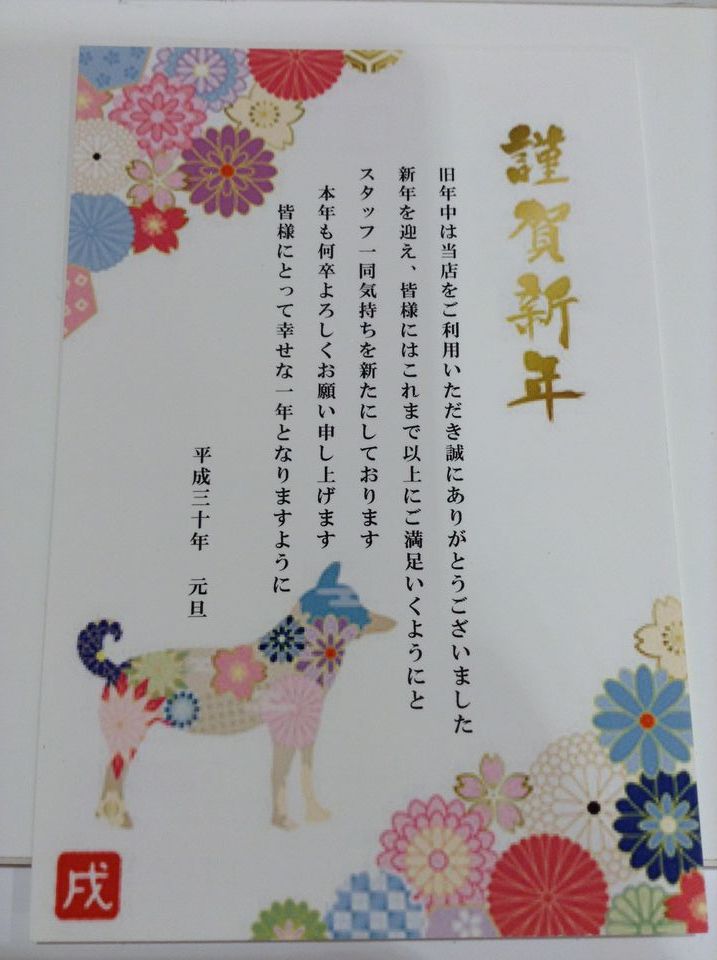 謹賀新年
旧年中は当店をご利用いただき誠にありがとうございました
新年を迎え、皆様にはこれまで以上にご満足いくようにと
スタッフ一同気持ちを新たにしております
本年も何卒よろしくお願い申し上げます
皆様にとって幸せな一年となりますように
平成三十年　元旦
戌